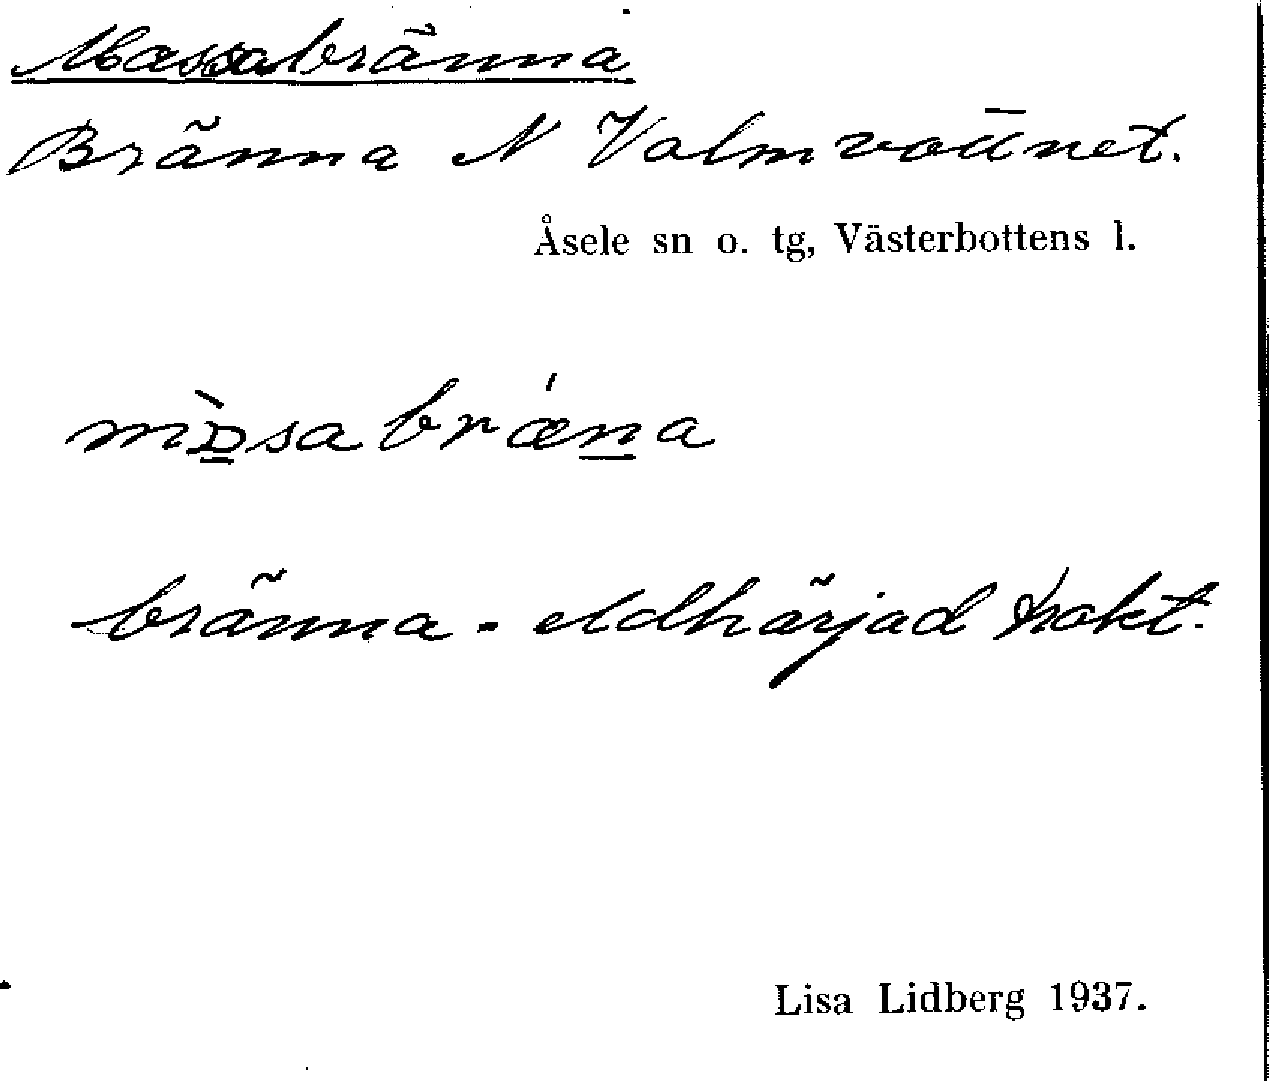 Massabränna
Bränna N Valmvattnet.
Åsele sn o. tg, Västerbottens l.
bränna - eldhärjad trakt.
Lisa Lidberg 1937.